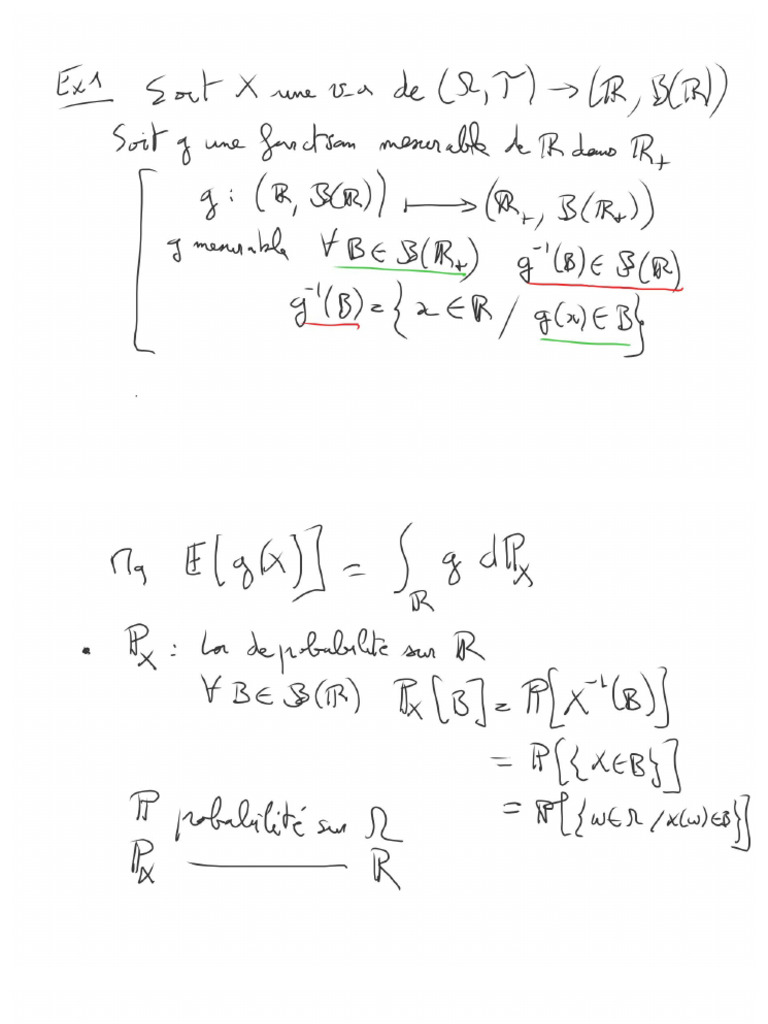 Ex1 Soit X une v.a de (Ω, T) → (ℝ, B(ℝ))
Soit g une fonction mesurable de ℝ dans ℝ₊
g : (ℝ, B(ℝ)) ⟼ (ℝ₊, B(ℝ₊))
g mesurable ∀ B ∈ B(ℝ₊) g⁻¹(B) ∈ B(ℝ)
g⁻¹(B) = { x ∈ ℝ / g(x) ∈ B }
Mq E[g(X)] = ∫_ℝ g dℙ_X
• ℙ_X : Loi de probabilité sur ℝ
∀ B ∈ B(ℝ) ℙ_X[B] = ℙ[X⁻¹(B)]
= ℙ[{X ∈ B}]
= ℙ[{ω ∈ Ω / X(ω) ∈ B}]
ℙ probabilité sur Ω
ℙ_X ———— ℝ